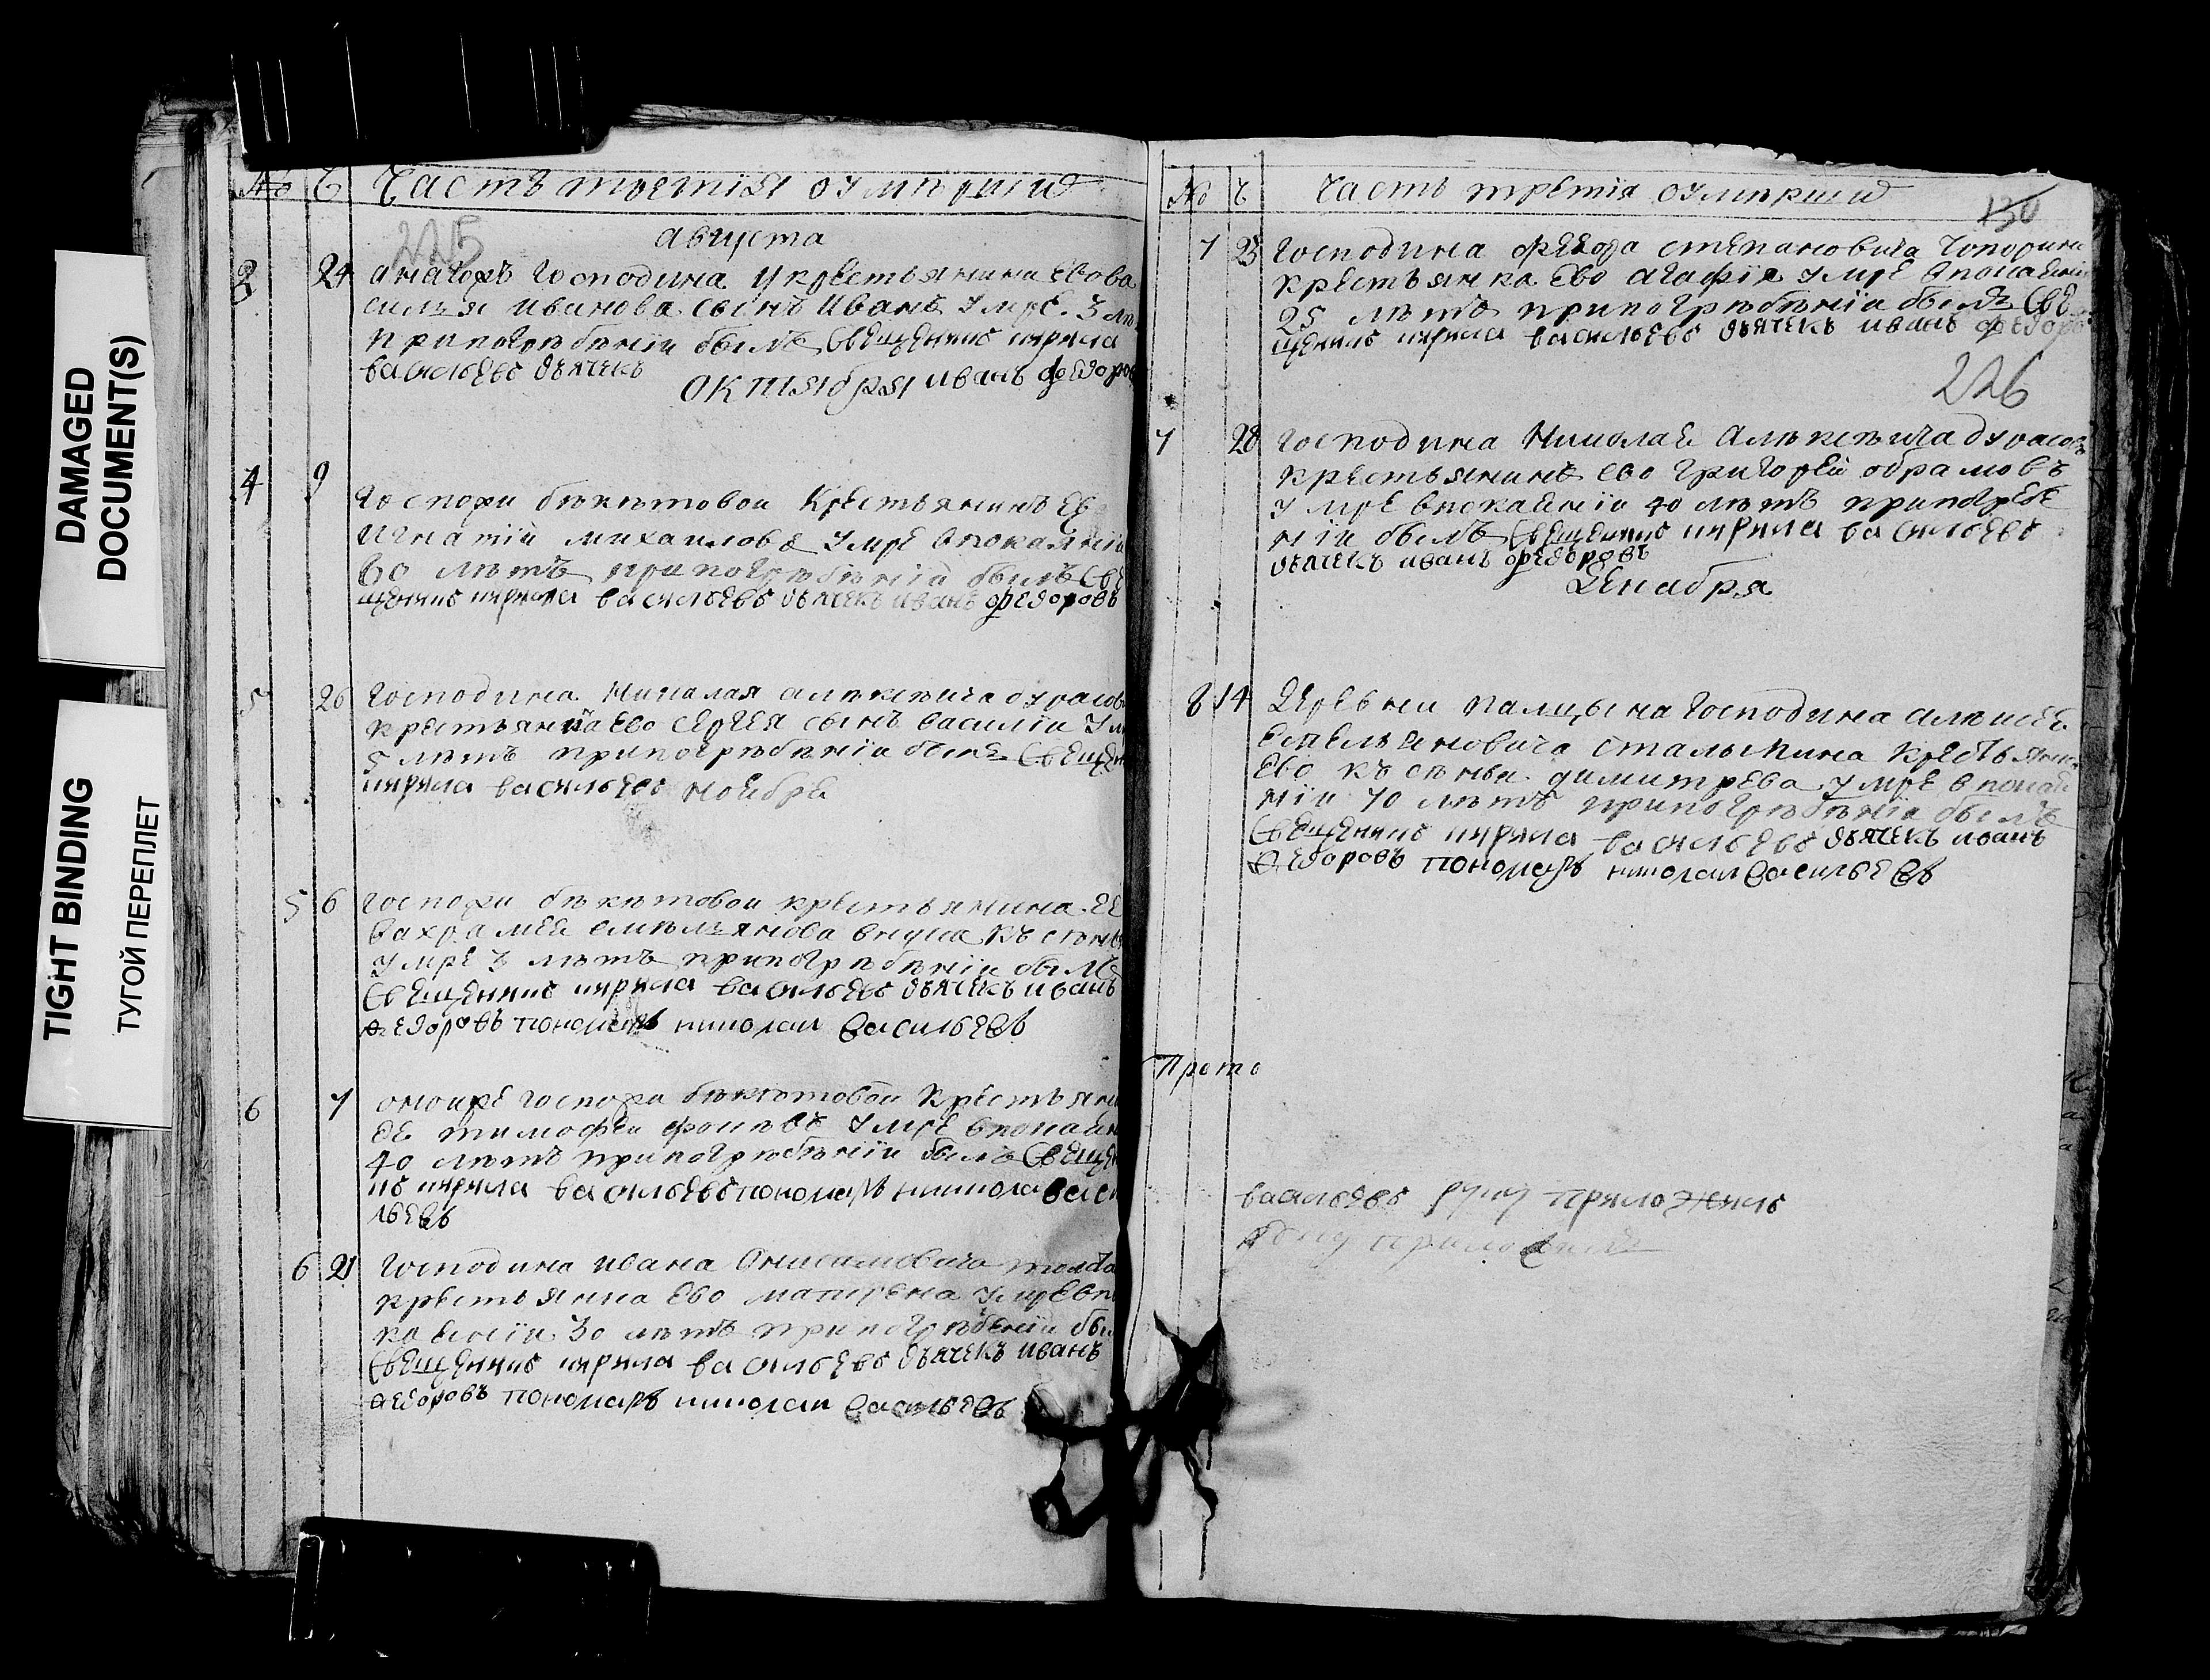 DAMAGED
DOCUMENT(S)
TIGHT BINDING
ТУГОЙ ПЕРЕПЛЕТ
№ Ч Часть третiя оумѣрших
225
августа
24 господина крестьянина ево ва
силья иванова сынъ иванъ умре 3
припогрѣбѣнiи былъ священикъ кирила
васильевъ дьячекъ иванъ федоров
октября
4 9 госпожи бѣкѣтовои крестьянинъ ев
игнатiи михаиловъ умре впокаянiи
лѣтъ припогрѣбѣнiи былъ све
щеникъ кирила васильевъ дьячекъ иванъ федоровъ
5 26 господина николая алѣксѣича дурасов
крестьянина ево сергея сынъ василiи
5 лѣтъ припогрѣбѣнiи былъ священ
кирила васильевъ
ноебре
5 6 госпожи бѣкѣтовои крестьянина ее
вахрамея емѣльянова внука
умре 3 лѣтъ припогрѣбѣнiи былъ
священикъ кирила васильевъ дьячекъ иванъ
федоровъ пономарь николаи васильевъ
6 7 госпожи бѣкѣтовои крестьяни
ее тимофеи умре впокаян
40 лѣтъ припогрѣбѣнiи былъ свещен
къ кирила васильевъ пономарь никола васи
льевъ
6 21 господина ивана онисимовича
крестьянка ево матрена умре впо
каенiи 30 лѣтъ припогрѣбѣнiи бы
священикъ кирила васильевъ дьячекъ иванъ
федоровъ пономарь николаи васильевъ
№ Ч Часть третiя оумѣрших
130
7 23 господина федора степановича
крестьянка ево агафiя умре впокаенiи
25 лѣтъ припогрѣбѣнiи былъ све
щеникъ кирила васильевъ дьячекъ иванъ федоро
226
7 28 господина николае алѣксѣича дурасов
крестьянинъ ево григореи обрамовъ
умре впокаинiи 40 лѣтъ припогребе
нiи былъ священикъ кирила васильевъ
дьячекъ иванъ федоровъ
декабря
8 14 деревни палицына господина алѣксее
емельяновича сталыпина крестьянк
ево димитрева умре впокаи
нiи 70 лѣтъ припогрѣбѣнiи былъ
священикъ кирила васильевъ дьячекъ иванъ
федоровъ пономарь николаи васильевъ
Прото
васильевъ руку приложилъ
руку приложилъ